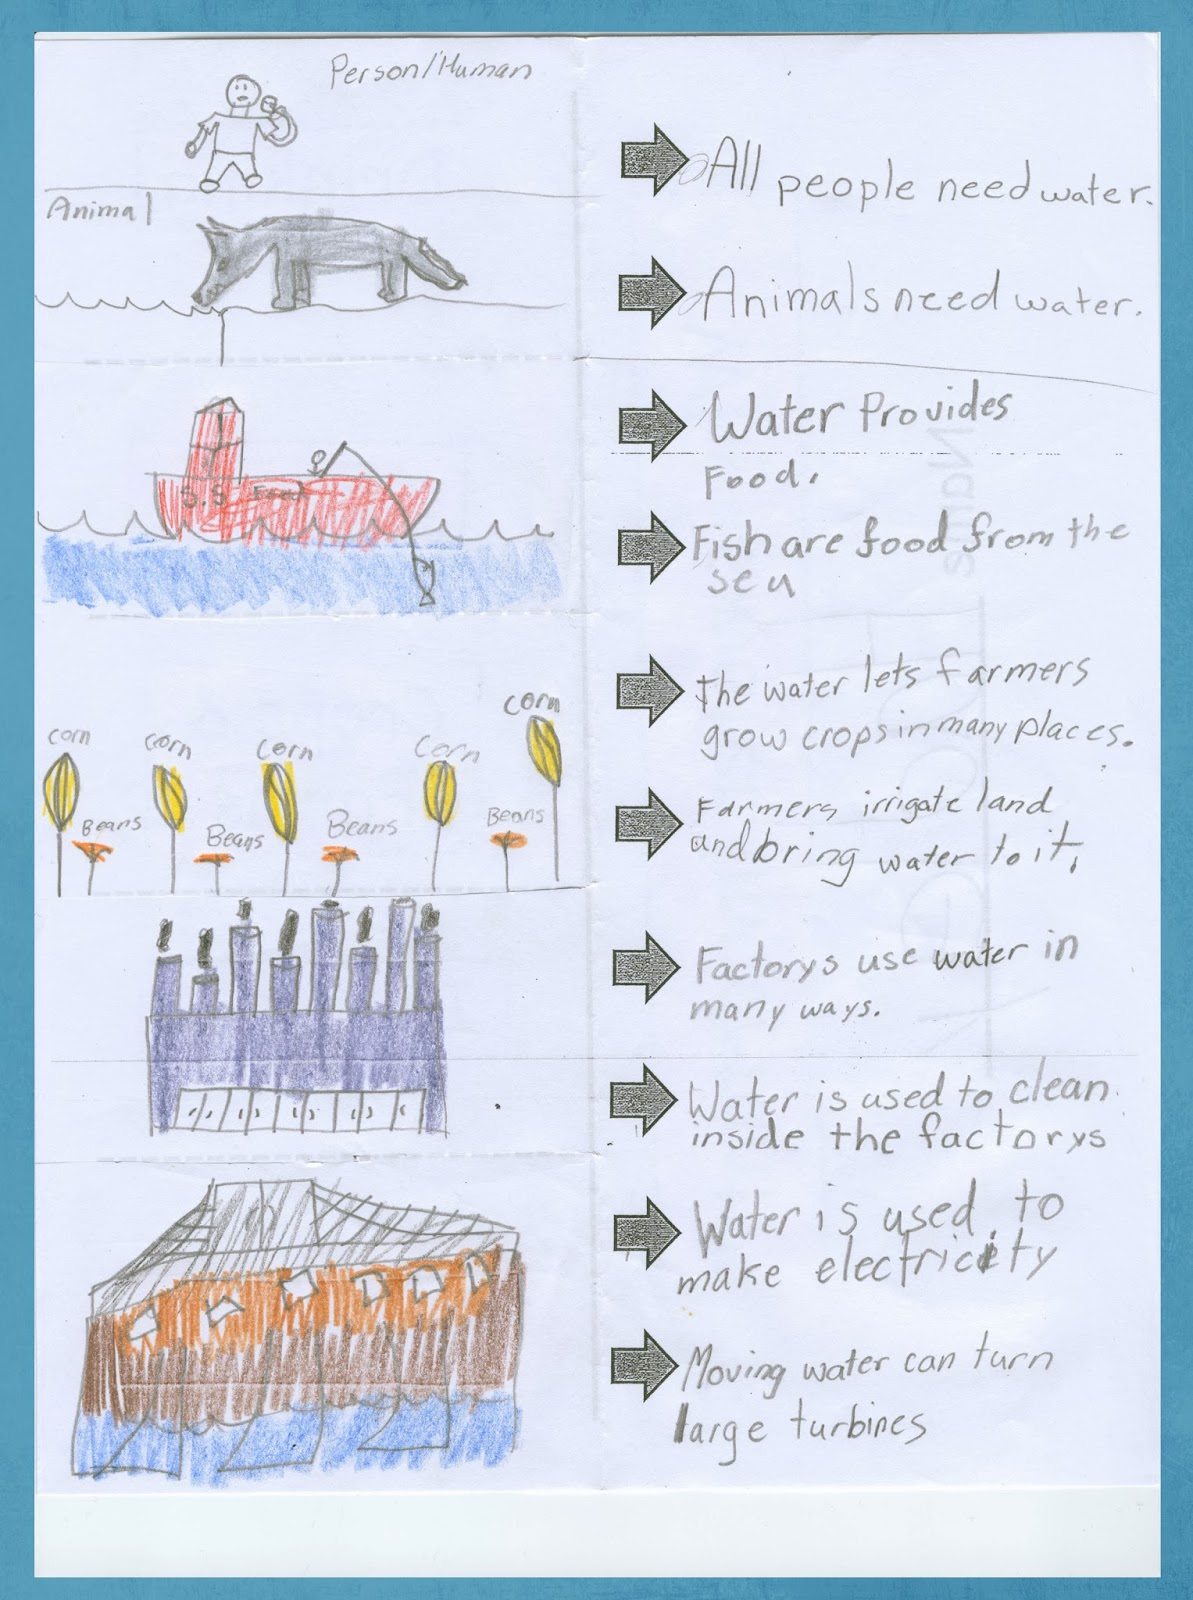 Person/Human
All people need water.
Animal
Animals need water.
Water Provides
Food.
S.S
Fish are food from the
sea
The water lets farmers
grow crops in many places.
corn
corn
corn
corn
corn
Beans
Beans
Beans
Beans
Farmers irrigate land
and bring water to it.
Factorys use water in
many ways.
Water is used to clean
inside the factorys
Water is used to
make electricity
Moving water can turn
large turbines